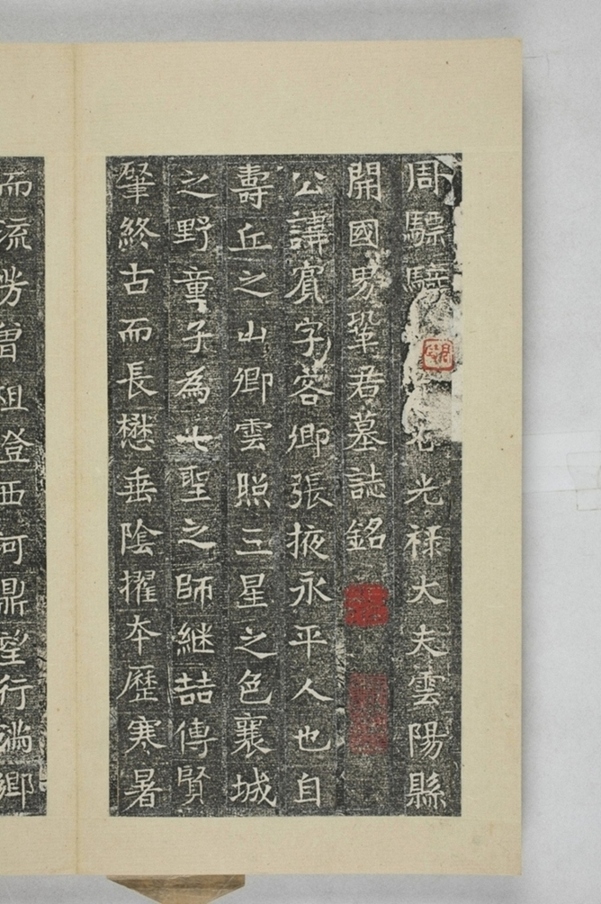 周驃騎右光禄大夫雲陽縣
開國男鞏君墓誌銘
公諱賓字客卿張掖永平人也自
壽丘之山卿雲照三星之色襄城
之野童子為七聖之師継喆傳賢
肇終古而長懋垂陰擢夲歷寒暑
而流芳曽祖澄西河鼎望行滿鄉